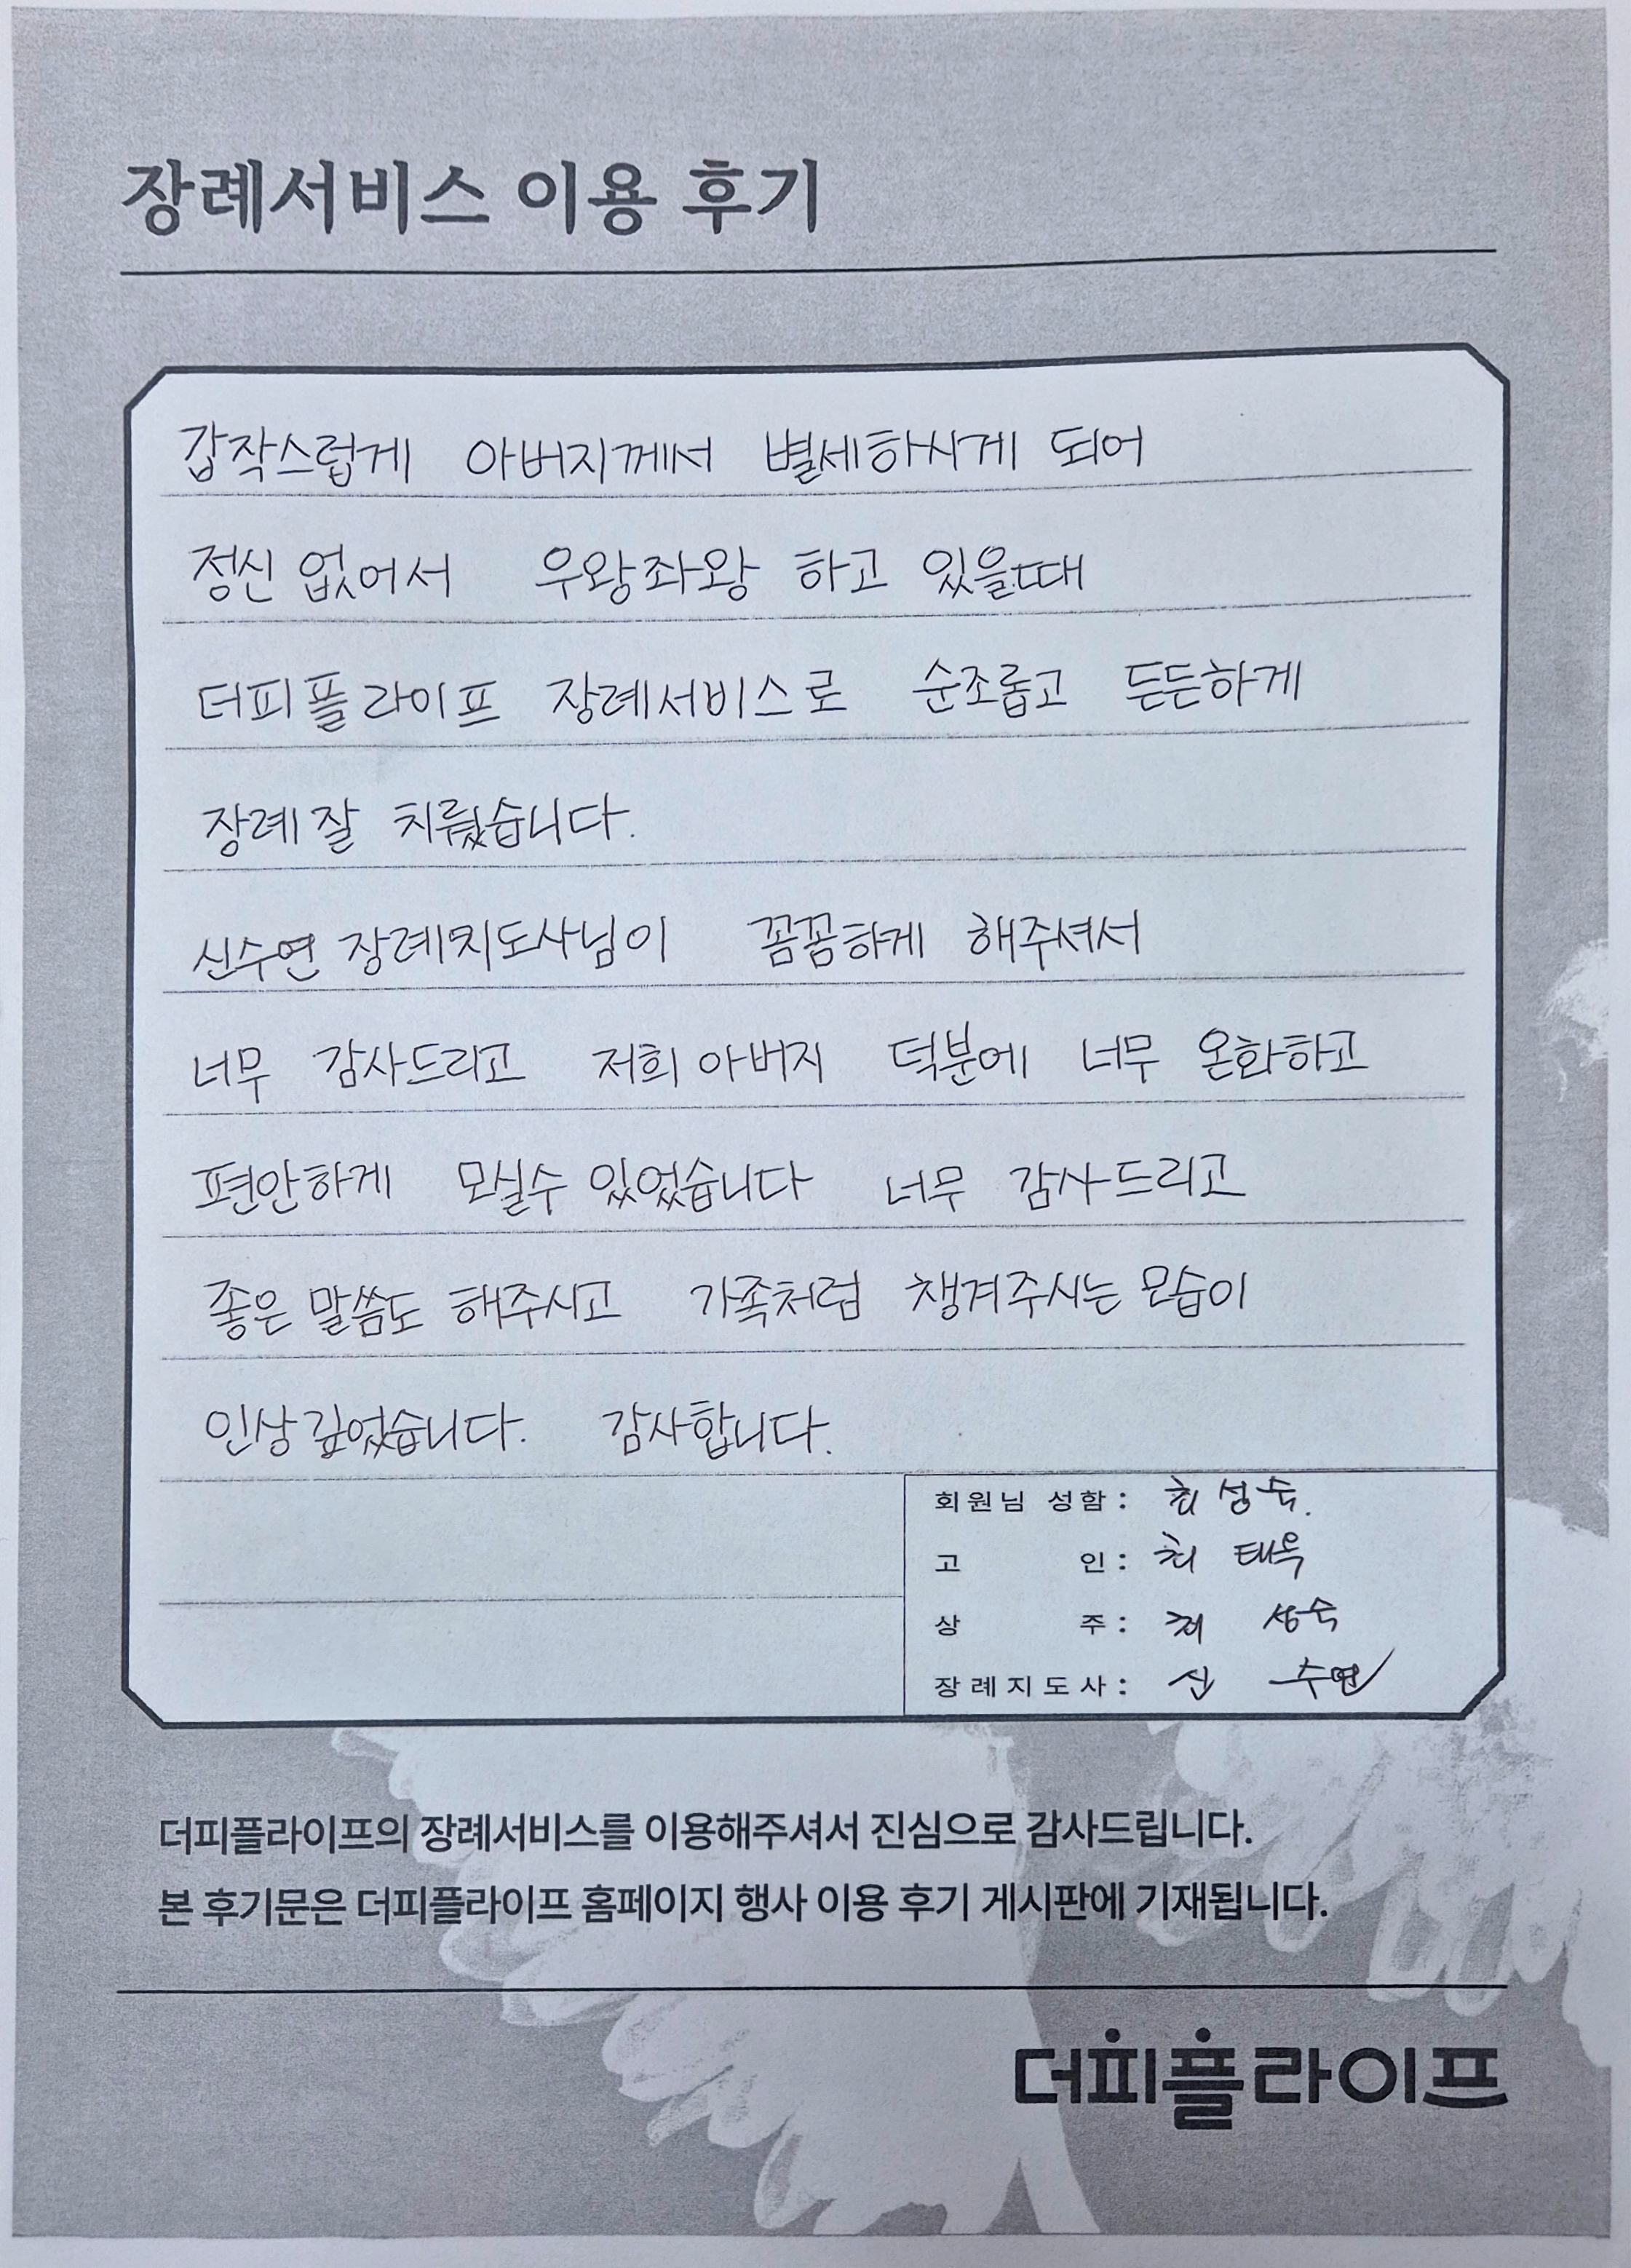 장례서비스 이용 후기
갑작스럽게 아버지께서 별세하시게 되어
정신 없어서 우왕좌왕 하고 있을때
더피플라이프 장례서비스로 순조롭고 든든하게
장례 잘 치뤘습니다.
신수연 장례지도사님이 꼼꼼하게 해주셔서
너무 감사드리고 저희 아버지 덕분에 너무 온화하고
편안하게 모실수 있었습니다 너무 감사드리고
좋은 말씀도 해주시고 가족처럼 챙겨주시는 모습이
인상 깊었습니다. 감사합니다.
회원님 성함 : 최성숙.
고 인 : 최 태옥
상 주 : 최 성숙
장례지도사 : 신 수연
더피플라이프의 장례서비스를 이용해주셔서 진심으로 감사드립니다.
본 후기문은 더피플라이프 홈페이지 행사 이용 후기 게시판에 기재됩니다.
더피플라이프